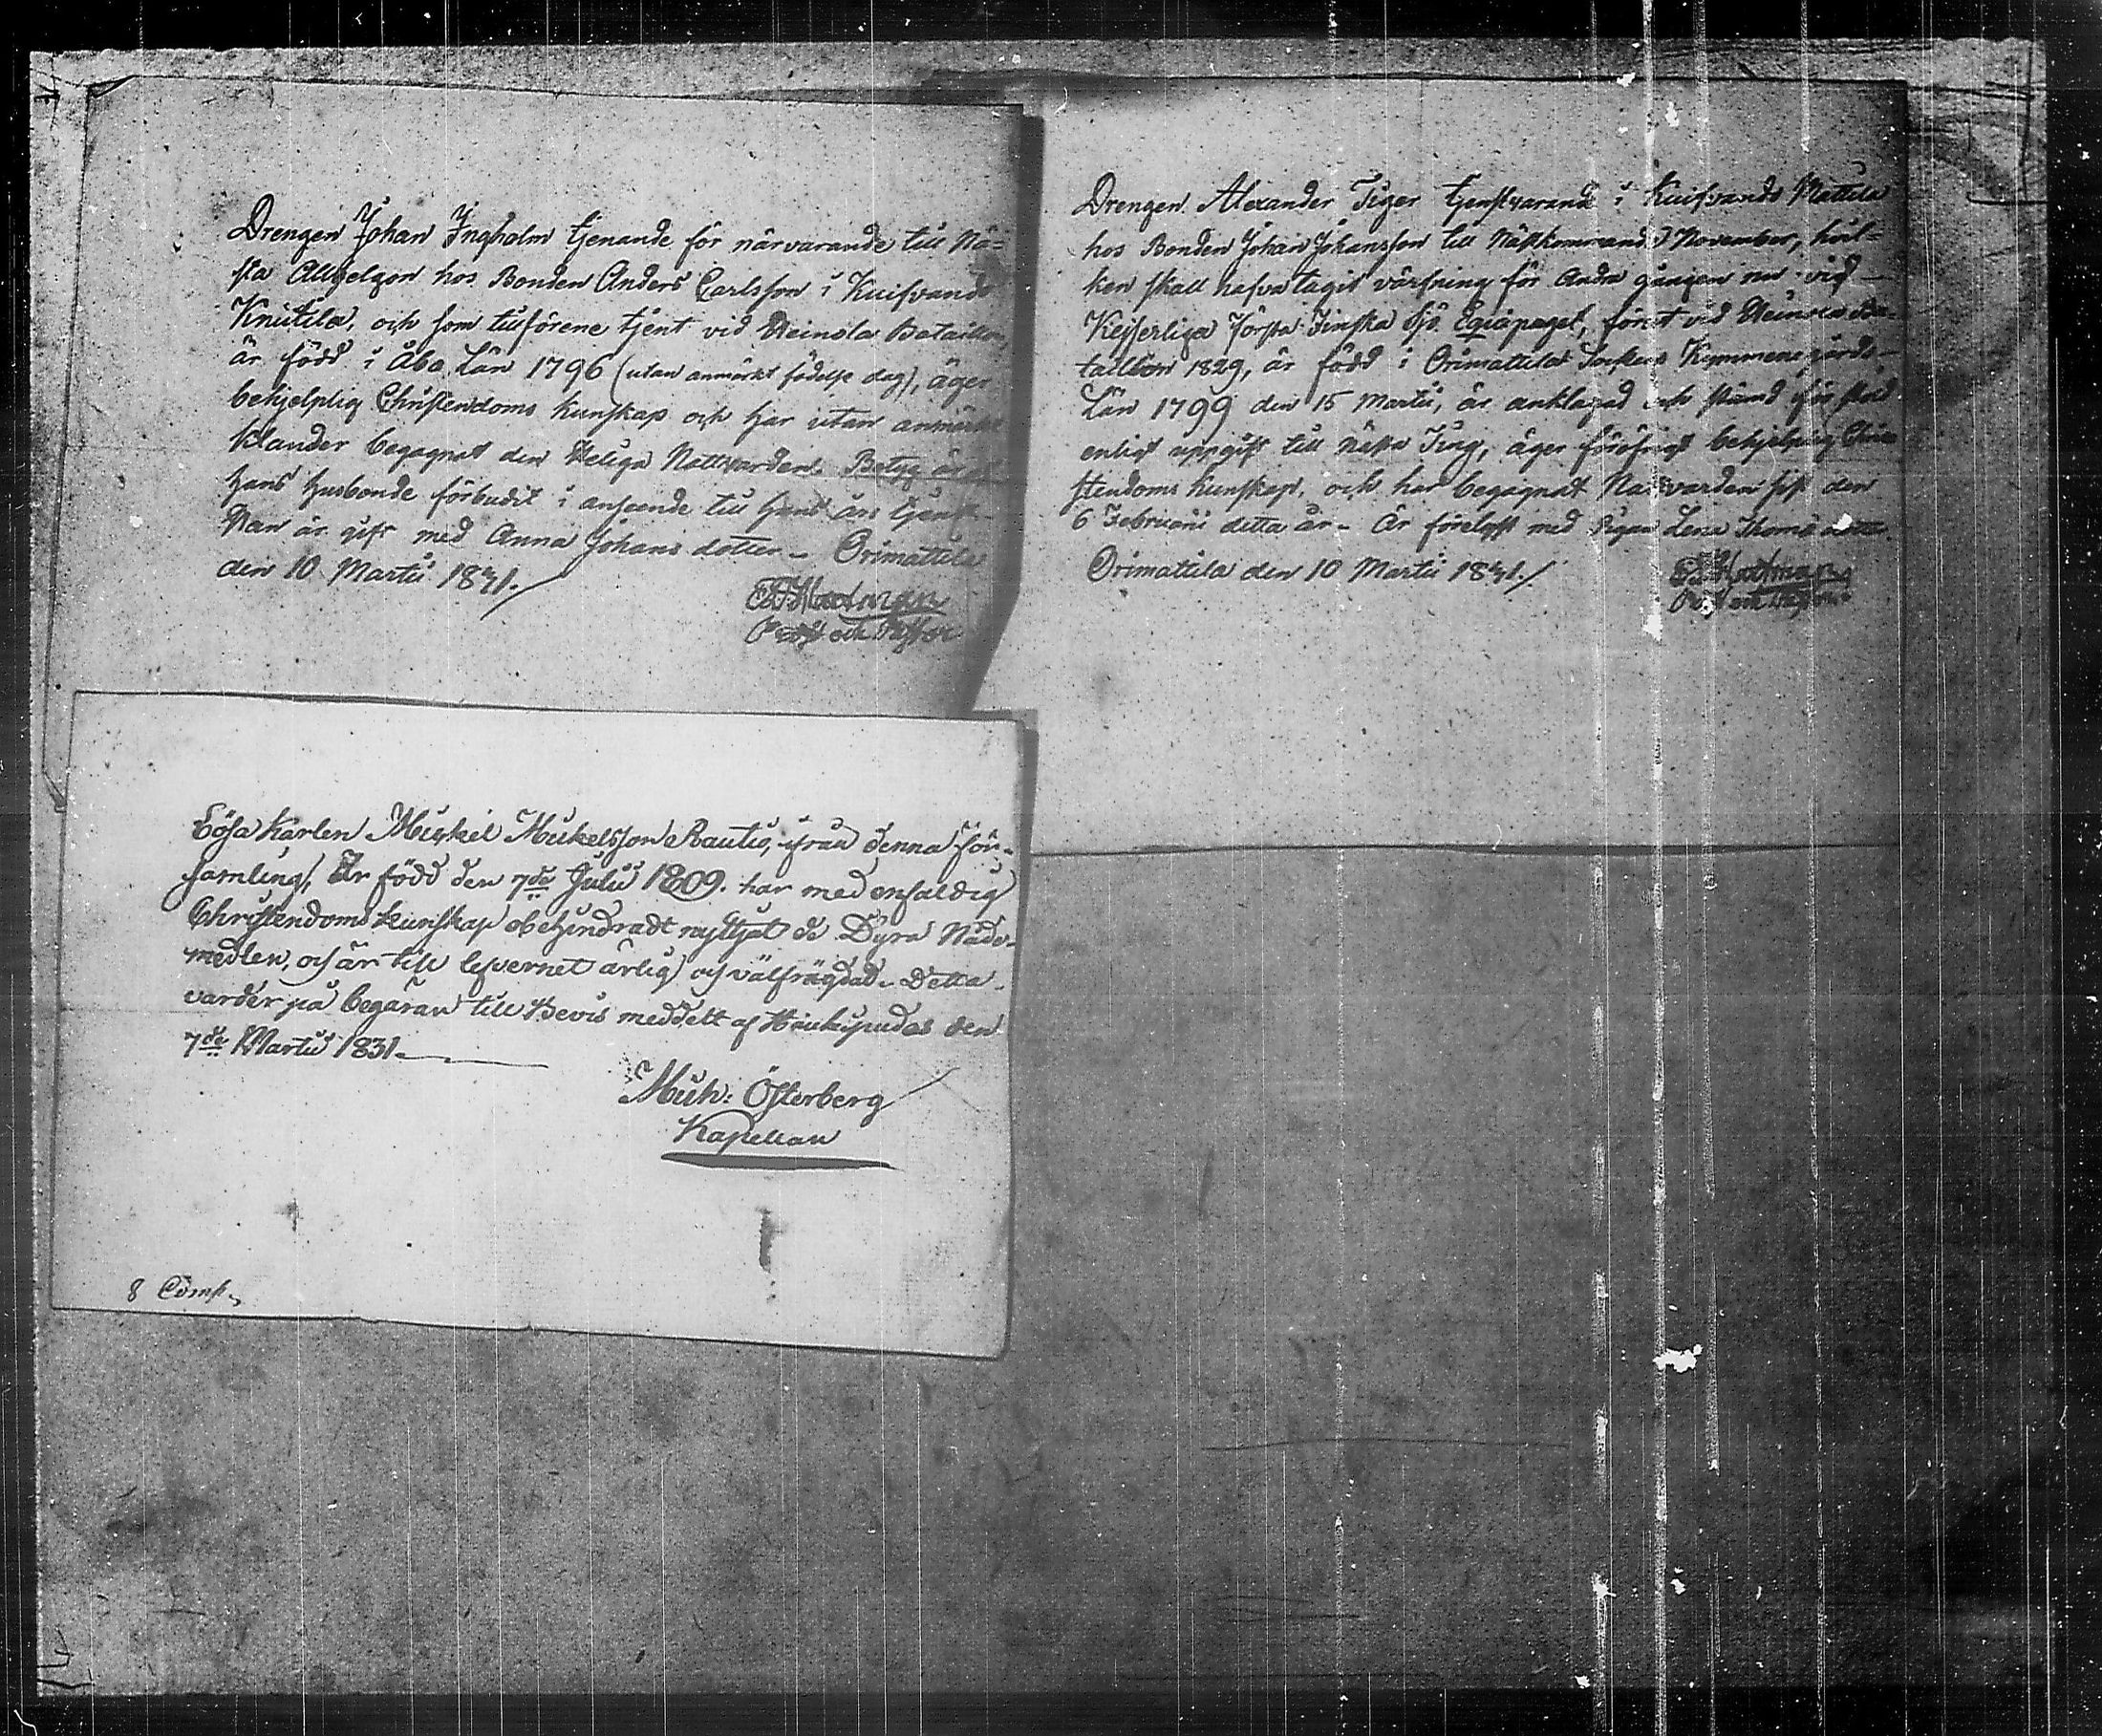 Drengen Johan Ingholm tjenande för närvarande till Nä-
sta Allhelgon hos Bonden Anders Carlsson i Kuifvando
Knutila, och som tillförene tjent vid Heinola Bataillon,
är född i Åbo Län 1796 (utan anmärkt födelse dag), äger
behjelplig Christendoms kunskap och har utan anmärkt
klander begagnat den Heliga Nattvarden. Betyg är af
hans husbonde förbudit i anseende till hans års tjenst.
Han är gift med Anna Johans dotter. Orimattila
den 10 Martii 1831.
Prost och Pastor
Drengen Alexander Tiger tjenstvarande i Kuifvando Mattila
hos Bonden Johan Johansson till Nästkommande November, hvil-
ken skall hafva tagit värfning för andra gången nu vid
Kejserliga Första Finska Sjö Equipaget, förut vid Heinola Ba-
taillon 1829, är född i Orimattila Socken Kymmenegårds
Län 1799 den 15 Martii, är anklagad och stämd för stöld
enligt uppgift till nästa Ting, äger föröfrigt behjelplig Chri-
stendoms kunskap, och har begagnat Nattvarden sist den
6 Februarii detta år. Är förelofft med Pigan Lena Thomæ dotter.
Orimattila den 10 Martii 1831.
Prost och Pastor
Lösa Karlen Mickel Mickelsson Rautio, ifrån denna För-
samling, Är född den 7de Julii 1809. har med enfaldig
Christendoms kunskap obehindradt nyttjat de Dyra Nåde-
medlen, och är till lefvernet ärlig och välfrägdad. Detta
varder på begäran till Bevis meddelt af Haukipudas den
7de Martii 1831.
Mich: Österberg
Kapellan
8 Comp.